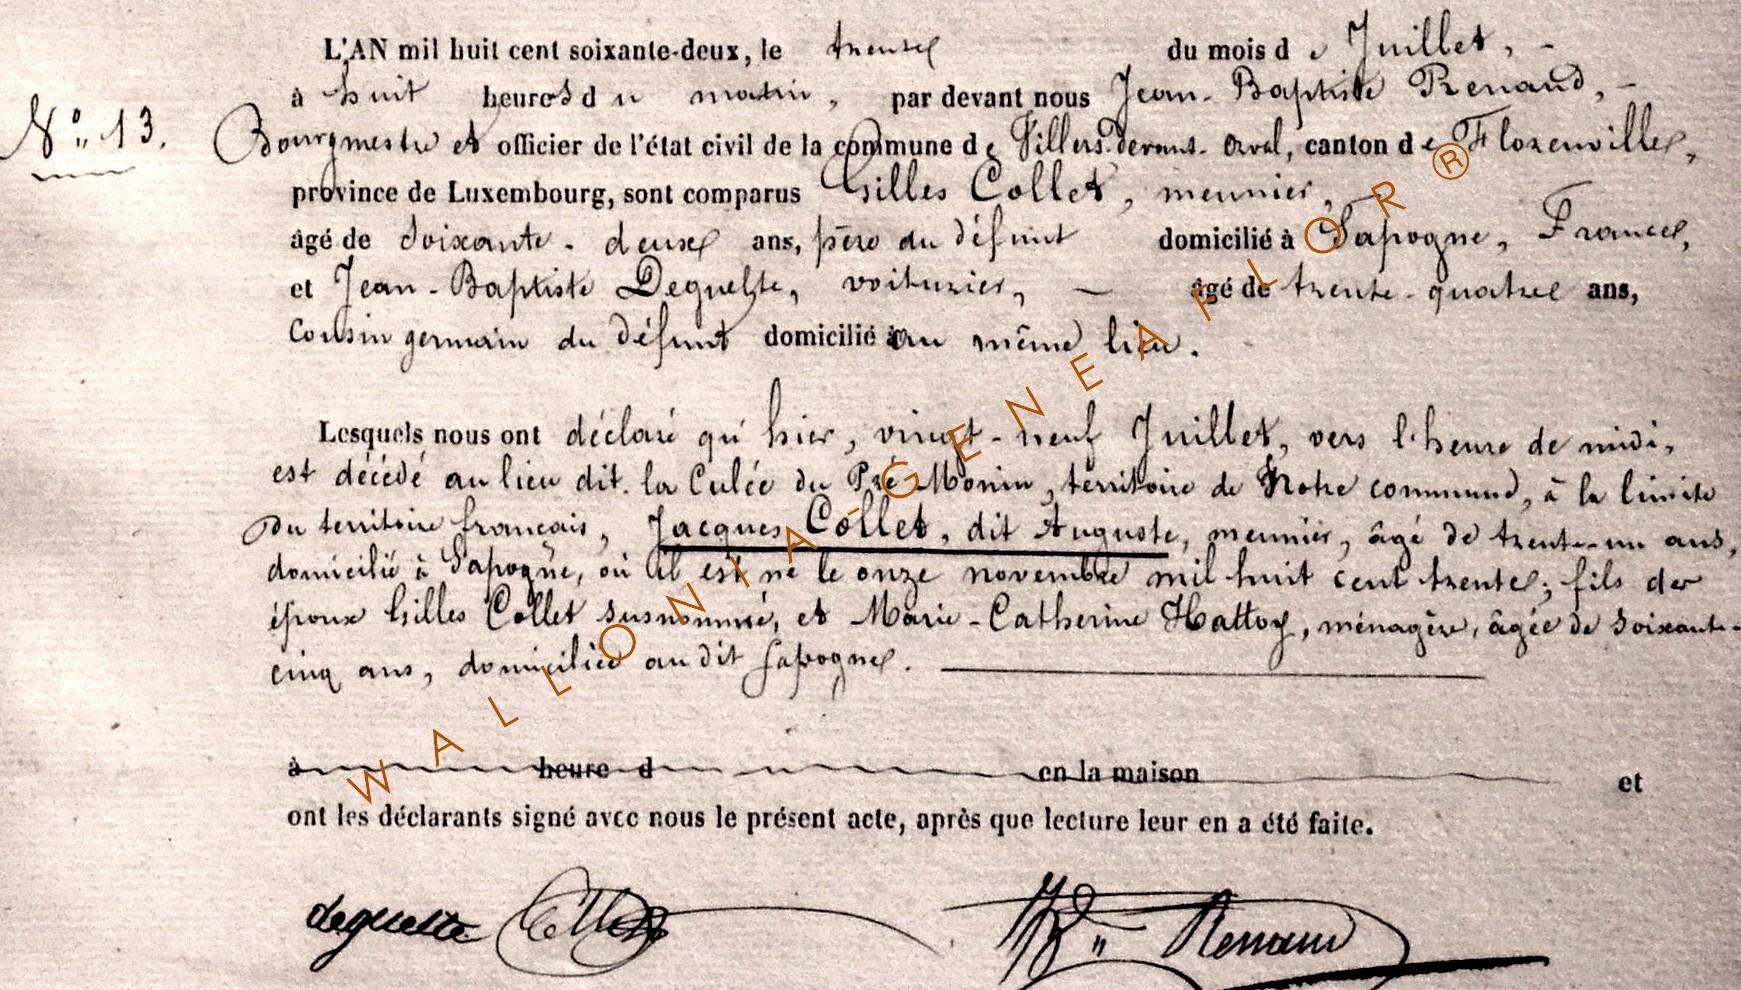 L'AN mil huit cent soixante-deux, le trente du mois de Juillet, -
à huit heures du matin, par devant nous Jean-Baptiste Renaud, -
N° 13.
Bourgmestre et officier de l'état civil de la commune de Villers-devant-Orval, canton de Florenville,
province de Luxembourg, sont comparus Gilles Collet, meunier,
âgé de soixante-deux ans, père du défunt domicilié à Sapogne, France,
et Jean-Baptiste Deguelte, voiturier, — âgé de trente-quatre ans,
Cousin germain du défunt domicilié au même lieu.
Lesquels nous ont déclaré qu'hier, vingt-neuf Juillet, vers l'heure de midi,
est décédé au lieu dit la Culée du Pré Monin, territoire de Notre commune, à la limite
du territoire français, Jacques Collet, dit Auguste, meunier, âgé de trente-un ans,
domicilié à Sapogne, où il est né le onze novembre mil huit cent trente; fils des
époux Gilles Collet susnommé, et Marie-Catherine Hattoy, ménagère, âgée de soixante-
cinq ans, domiciliée au dit Sapogne.
à heure d en la maison et
ont les déclarants signé avec nous le présent acte, après que lecture leur en a été faite.
deguelte Collet JBte Renaud
WALLONIA-GENEAFLOR®